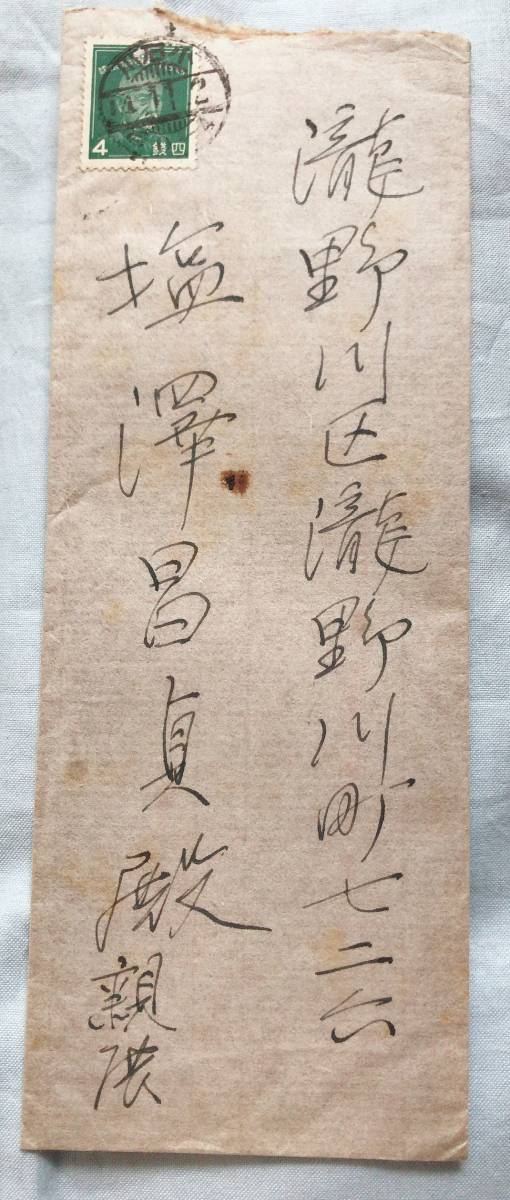 瀧野川区瀧野川町七二六
塩澤昌貞殿
親展
4
四銭